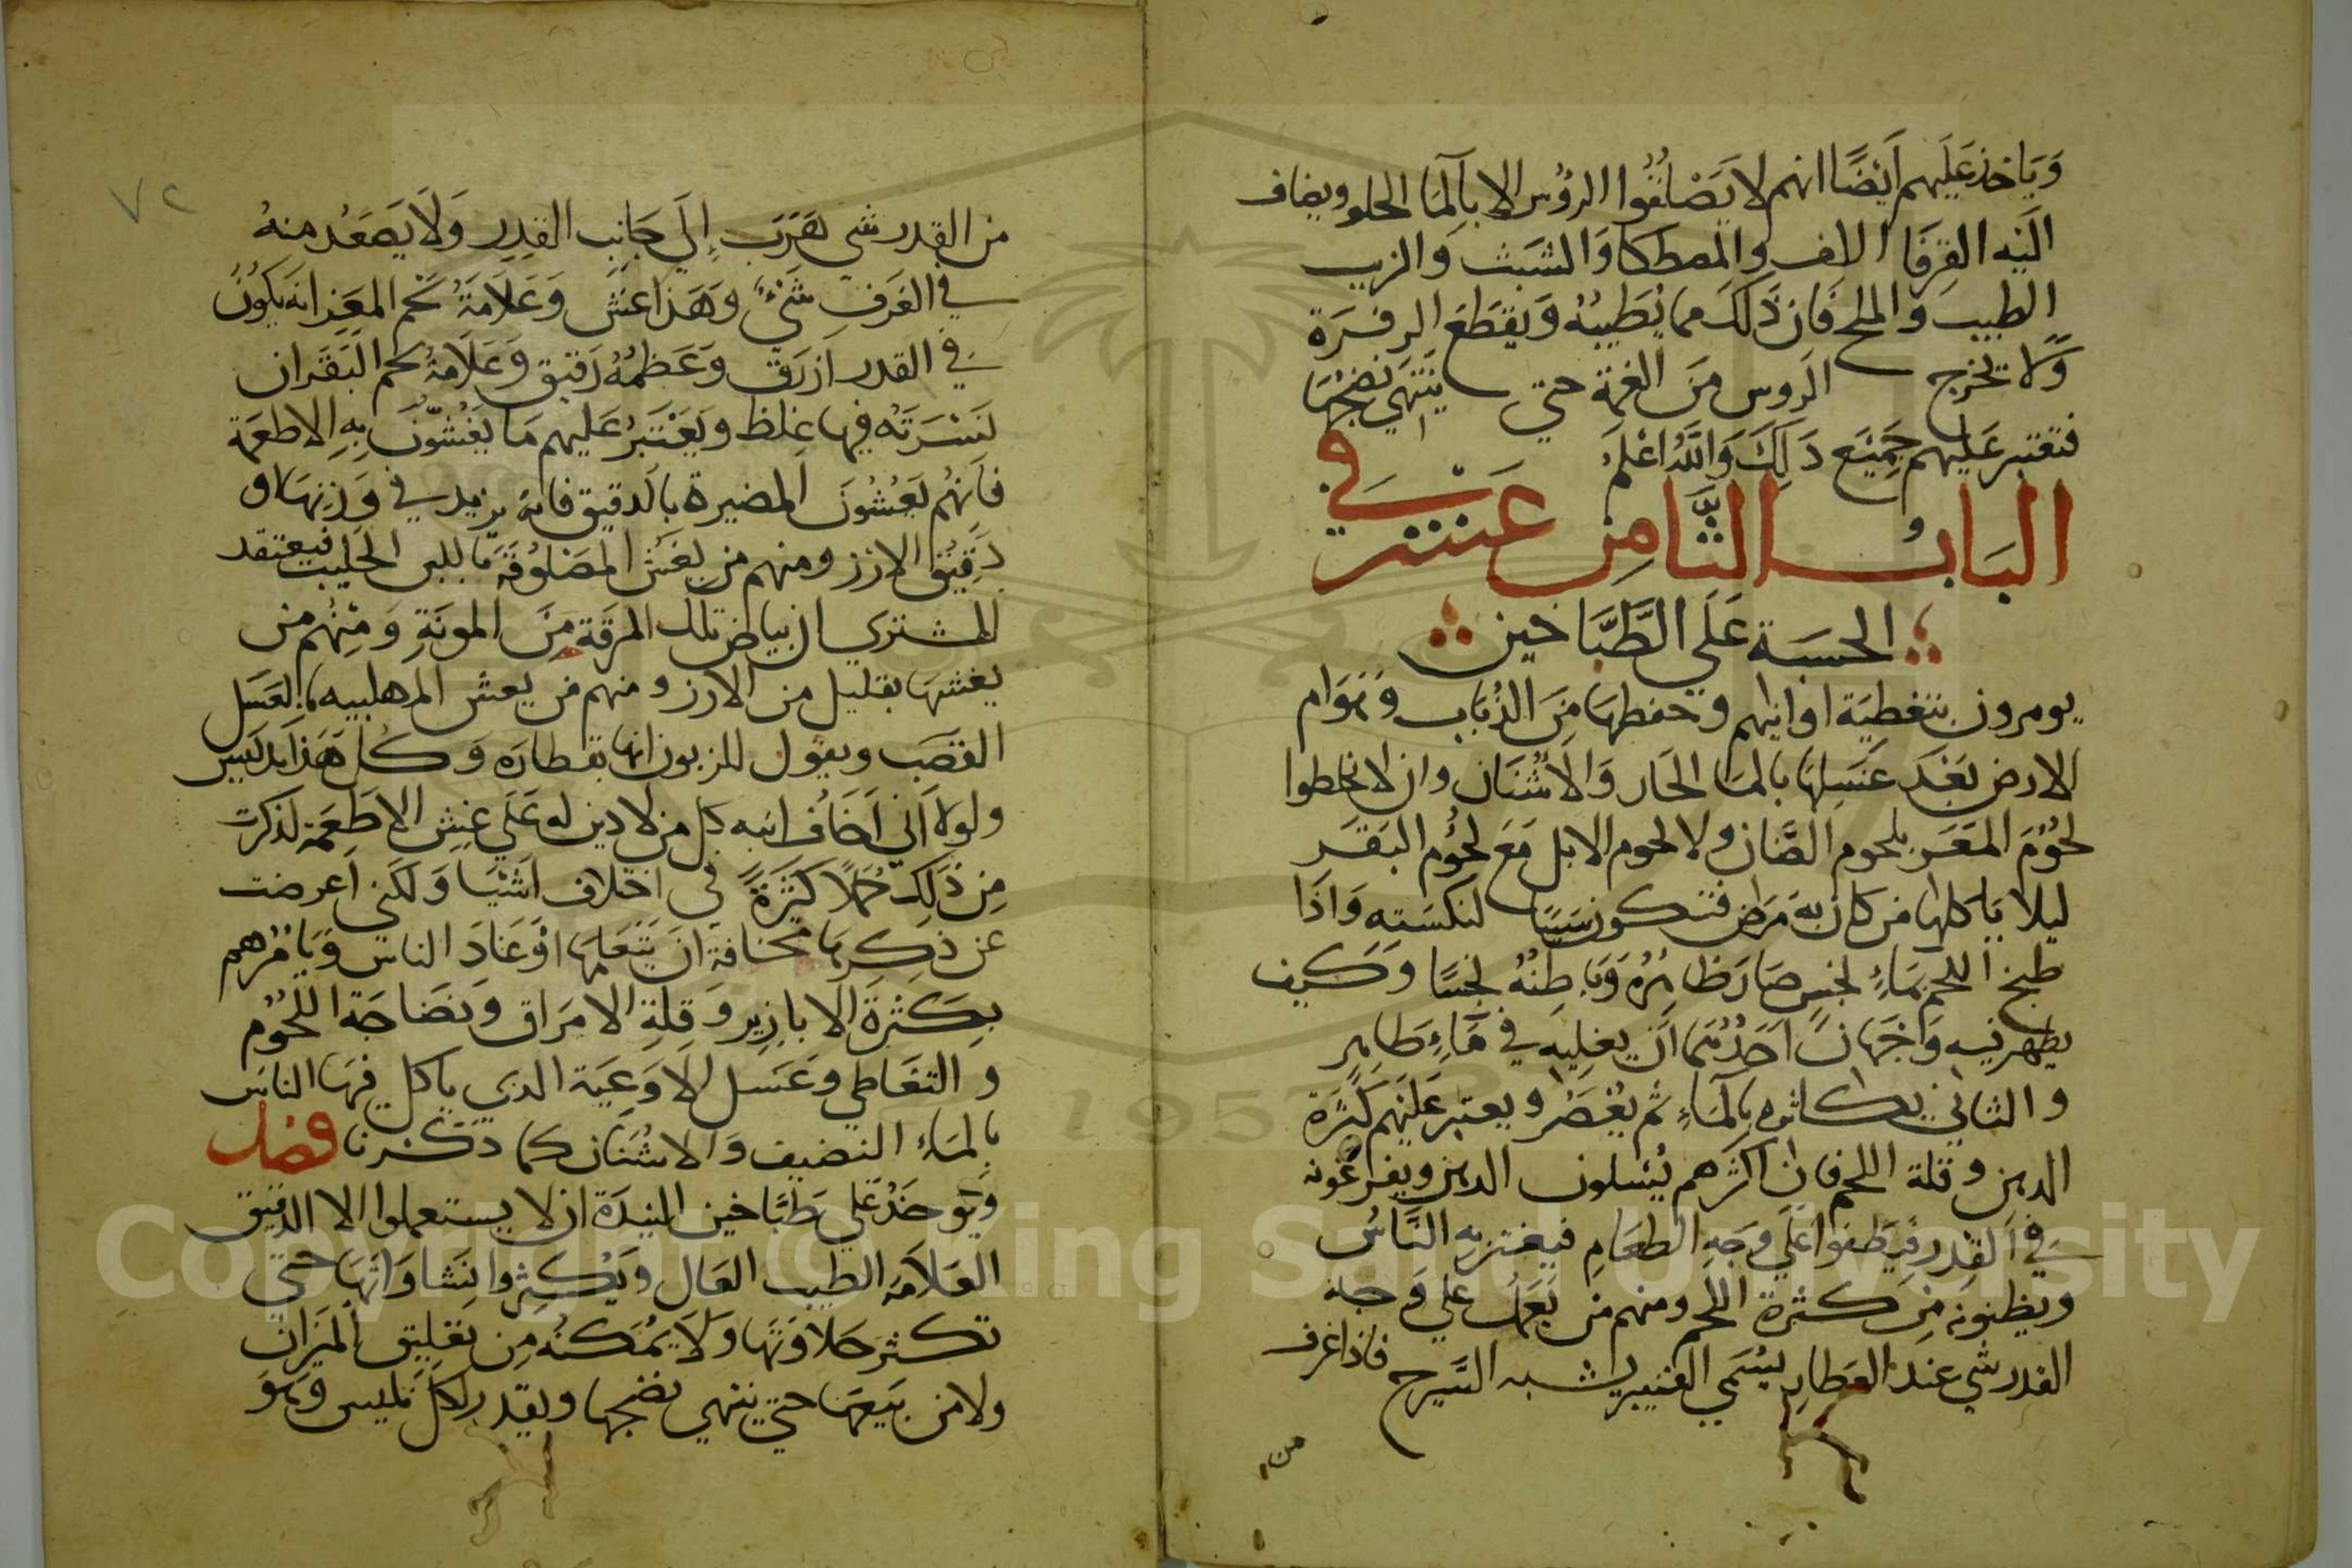 وَيَاخذ عَلَيهم اَيْضًا انهم لا يَصْلُقُوا الروُس الا بالمَا الحلو ويضاف
اليَه القِرفَا اللف والمصطكا وَالشبَث وَالزيت
الطيب وَالملح فَان ذَلكَ مما يُطَيبُه وَيقطَع الزفرَة
وَلا تخرج الروس مِنَ الغمة حتي ينتَهي نضجُهَا
فتعتبر عَليهم جَمِيْعَ ذَلِكَ وَاللَّهُ اعْلَم
البَابُ الثَّامِن عَشَر في
الحسبَة عَلَي الطَّبَّاخين
يومرون بتغطيَة اوانيهم وحفظهَا مِنَ الذُبَاب وَهَوَام
الارض بَعْد غسلِهَا بالمَا الحَار وَالاشْنَان وان لا يخلطوا
لحُوْمَ المَعَز بلحوم الضَّان ولا لحوم الابل مَعَ لحُوم البَقَر
ليلا يَاكلها من كان به مَرَض فتكون سَببًا لنكسَتِهِ وَاذَا
طبخ اللحم بمَاءٍ نجسٍ صَارَ ظاهرُهُ وَبَاطِنُهُ نجسًا وَكيف
يطهر فيه وَجهَانِ اَحَدُهُمَا اَن يغليه في مَاءٍ طَاهِرٍ
والثاني يكاثره بالمَاءِ ثم يُعْصَرُ ويعتبر عَلَيهم كَثرَة
الدهن وقلة اللحم فان اكثرهم يُسلون الدهن ويفرغونه
في القِدر فيَطفوا عَلَي وَجهِ الطعَامِ فيغتر بِهِ النَّاسُ
ويظنونه مِن كثرة اللحم ومنهم من يَعمَلُ علي وَجه
القدر شي عندَ العَطار يسُمي العنبير يشبه السَّيرج فاذا غرف
من
٧٢
من القِدر شي هَرَبَ اِلَي جَانِبِ القِدِر وَلَا يَصعَد منهُ
في الغَرفِ شَيءٌ وَهَذا غش وَعَلاَمَةُ لحم المَعَزِ انه يَكونُ
في القدر اَزرَق وعَظمُهُ رَقيق وَعَلَامَةُ لحم البَقَر ان
نَسْرَتَه فيها غِلظ ويَعْتَبَرُ عَليهم مَا يَغُشّونَ بِهِ الاطعمَة
فأنهُم يَغُشُونَ المضيرة بالدقيق فانه يزيد في وَزنِهَا او
دَقِيْق الارز ومنهم من يغش المصَلُوقَة باللبن الحَليب فيعتقد
المشتري ان بيَاض تلك المرقَة مِنَ المونَةِ وَمِنْهُم من
يغشهَا بقليل من الارز ومنهم من يغش المهلبيه بالعَسَل
القصَب ويقول للزبون انها بقطارَه وَكل هَذا تدليس
ولولا اني اَخَاف انبه كل من لا دين له عَلَي غِشِ الاطعِمَة لذكرت
مِن ذَلِكَ جُمَلاً كثيرَةً في اختلاف اَشيَا وَلكني اَعرضت
عن ذِكرِهَا مخَافة ان يَتَعَلمهَا اوْغَادَ الناس وَيَامُرهم
بكَثرة الابازير وَقِلةِ الامرَاق وَنضَاجَة اللُحوُم
والتغاطي وغَسل الاوْعِيَة الذي ياكل فِيهَا الناس
بالماء النضيف وَالاشْنَان كما ذكرنا فصل
وَيوخَذُ عَلي طَبَّاخين المنيدَة ان لا يستعملوا الا الدقيق
العَلاَمَه الطيب العَال وَيُكثِروا نِشَاوَاتهَا حتي
تكثر حَلاوتهَا وَلا يُمكنُه مِن تعليق الميزان
ولا من بَيعهَا حتي ينتهي نضجها ويقدر لكل تليس وَهو